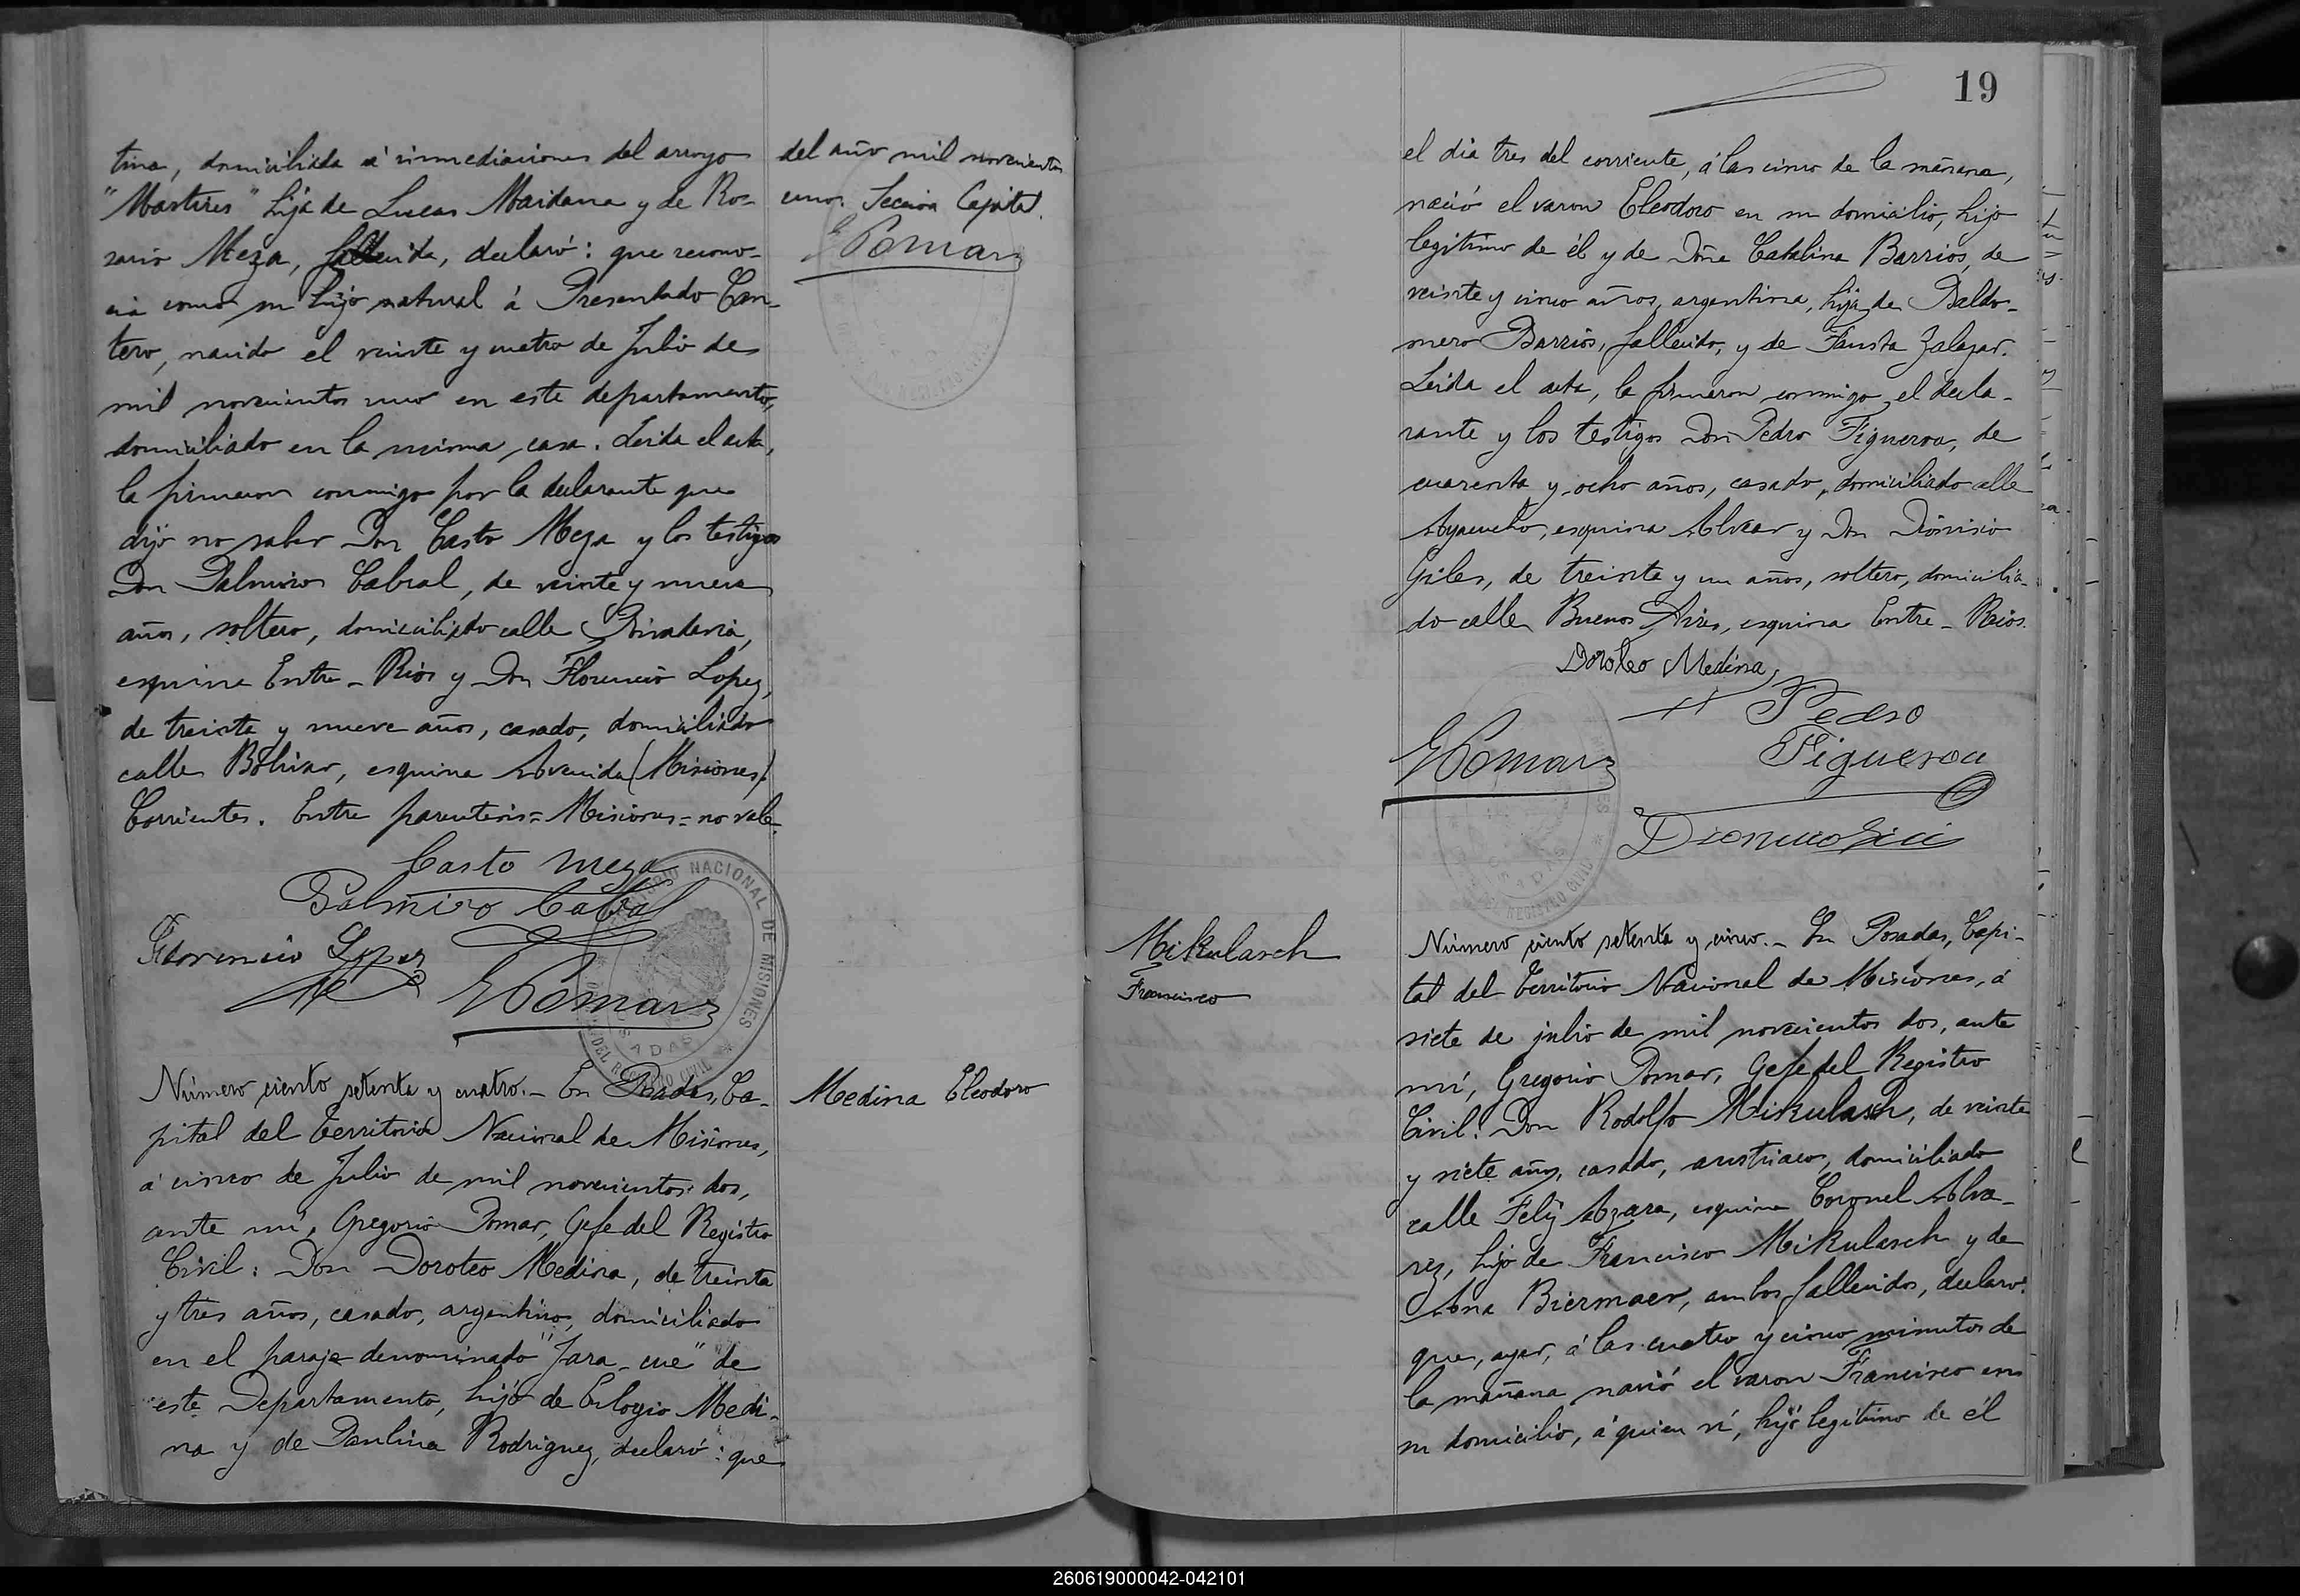 tina, domiciliada á inmediaciones del arroyo
"Martires" hija de Lucas Maidana y de Ro-
sario Meza, fallecida, declaró: que recono-
cia como su hijo natural á Presentado Can-
tero, nacido el veinte y cuatro de Julio de
mil novecientos uno en este departamento,
domiciliado en la misma casa. Leida el acta,
la firmaron conmigo por la declarante que
dijo no saber Don Casto Meza y los testigos
Don Palmiro Cabral, de veinte y nueve
años, soltero, domiciliado calle Rivadavia,
esquina Entre-Rios y Don Florencio Lopez,
de treinta y nueve años, casado, domiciliado
calle Bolivar, esquina Avenida (Misiones)
Corrientes. Entre parentesis = Misiones = no vale.
Casto Meza
Palmiro Cabral
Florencio Lopez
G Pomar
Número ciento setenta y cuatro.- En Posadas, Ca-
pital del Territorio Nacional de Misiones,
á cinco de Julio de mil novecientos dos,
ante mí, Gregorio Pomar, Gefe del Registro
Civil: Don Doroteo Medina, de treinta
y tres años, casado, argentino, domiciliado
en el paraje denominado "Jara-cue" de
este Departamento, hijo de Eulogio Medi-
na y de Paulina Rodriguez, declaró: que
del año mil novecientos
uno. Seccion Capital.
G Pomar
Medina Eleodoro
19
el dia tres del corriente, á las cinco de la mañana,
nació el varon Eleodoro en su domicilio, hijo
legitimo de él y de Doña Catalina Barrios, de
veinte y cinco años, argentina, hija de Baldo-
mero Barrios, fallecido, y de Fausta Zalazar.
Leida el acta, la firmaron conmigo, el decla-
rante y los testigos Don Pedro Figueroa, de
cuarenta y ocho años, casado, domiciliado calle
Ayacucho, esquina Alvear y Don Dionisio
Giles, de treinta y un años, soltero, domicilia-
do calle Buenos Aires, esquina Entre-Rios.
Doroteo Medina
Pedro
Figueroa
G Pomar
Mikulasch
Francisco
Número ciento setenta y cinco.- En Posadas, Capi-
tal del Territorio Nacional de Misiones, á
siete de julio de mil novecientos dos, ante
mí, Gregorio Pomar, Gefe del Registro
Civil: Don Rodolfo Mikulasch, de veinte
y siete años, casado, austriaco, domiciliado
calle Felix Azara, esquina Coronel Alva-
rez, hijo de Francisco Mikulasch y de
Ana Biermaer, ambos fallecidos, declaró:
que, ayer, á las cuatro y cinco minutos de
la mañana nació el varon Francisco en
su domicilio, á quien ví, hijo legítimo de él
260619000042-042101